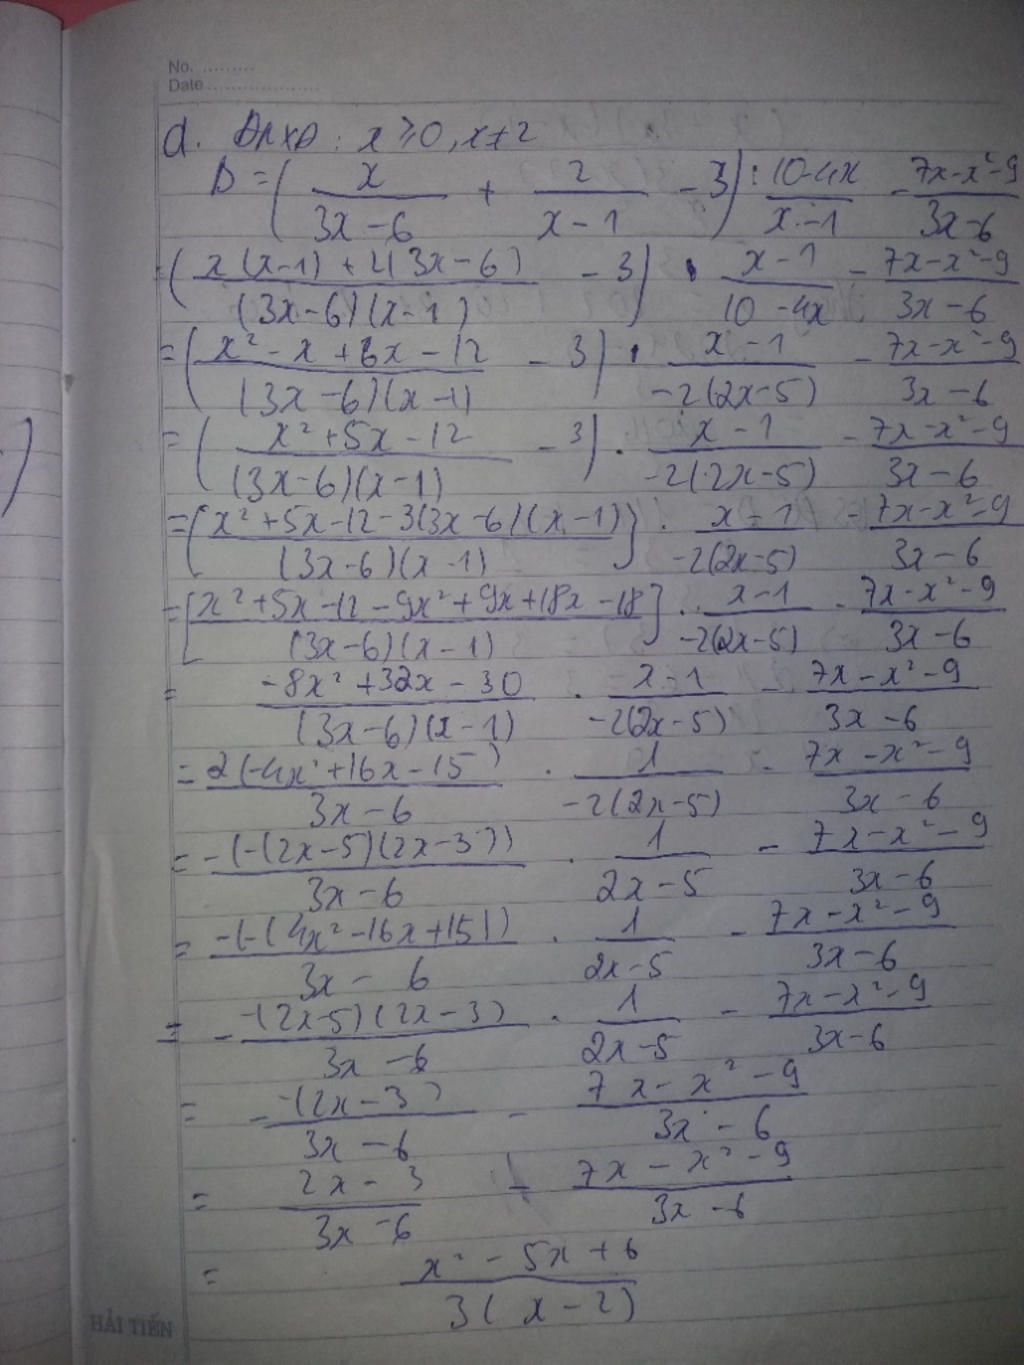 No. .........
Date ...................
d. ĐKXĐ : x ≥ 0, x ≠ 2
D = ( x/(3x-6) + 2/(x-1) - 3 ) : (10-4x)/(x-1) - (7x-x²-9)/(3x-6)
= ( (x(x-1) + 2(3x-6))/((3x-6)(x-1)) - 3 ) . (x-1)/(10-4x) - (7x-x²-9)/(3x-6)
= ( (x²-x+6x-12)/((3x-6)(x-1)) - 3 ) . (x-1)/(-2(2x-5)) - (7x-x²-9)/(3x-6)
= ( (x²+5x-12)/((3x-6)(x-1)) - 3 ) . (x-1)/(-2(2x-5)) - (7x-x²-9)/(3x-6)
= [ (x²+5x-12-3(3x-6)(x-1))/((3x-6)(x-1)) ] . (x-1)/(-2(2x-5)) - (7x-x²-9)/(3x-6)
= [ (x²+5x-12-9x²+9x+18x-18)/((3x-6)(x-1)) ] . (x-1)/(-2(2x-5)) - (7x-x²-9)/(3x-6)
= (-8x²+32x-30)/((3x-6)(x-1)) . (x-1)/(-2(2x-5)) - (7x-x²-9)/(3x-6)
= 2(-4x²+16x-15)/(3x-6) . 1/(-2(2x-5)) - (7x-x²-9)/(3x-6)
= -(-(2x-5)(2x-3))/(3x-6) . 1/(2x-5) - (7x-x²-9)/(3x-6)
= -(-(4x²-16x+15))/(3x-6) . 1/(2x-5) - (7x-x²-9)/(3x-6)
= - -(2x-5)(2x-3)/(3x-6) . 1/(2x-5) - (7x-x²-9)/(3x-6)
= - -(2x-3)/(3x-6) - (7x-x²-9)/(3x-6)
= (2x-3)/(3x-6) - (7x-x²-9)/(3x-6)
= (x²-5x+6)/(3(x-2))
HẢI TIẾN